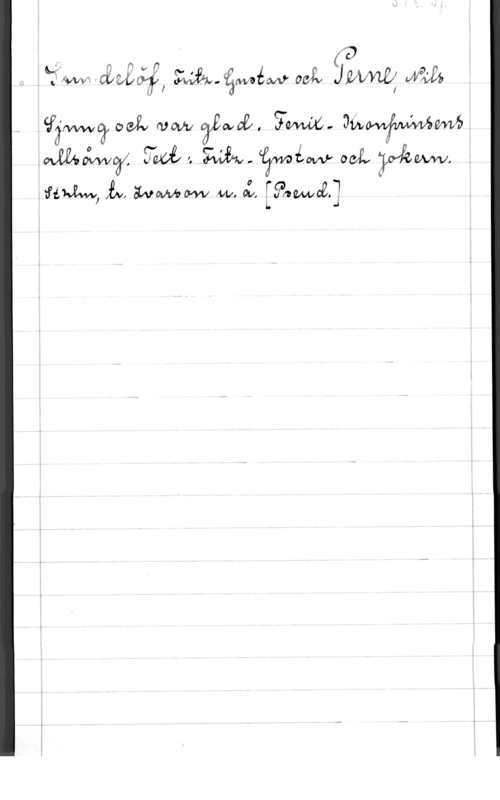 Sundelöf, Fritz-Gustav och Perne, Nils
Sjung och var glad. Fenix-Kronprinsens
allsång. Text: Fritz-Gustav och Jokern.
Sthlm, tr. Ivarson u. å. [Pseud.]